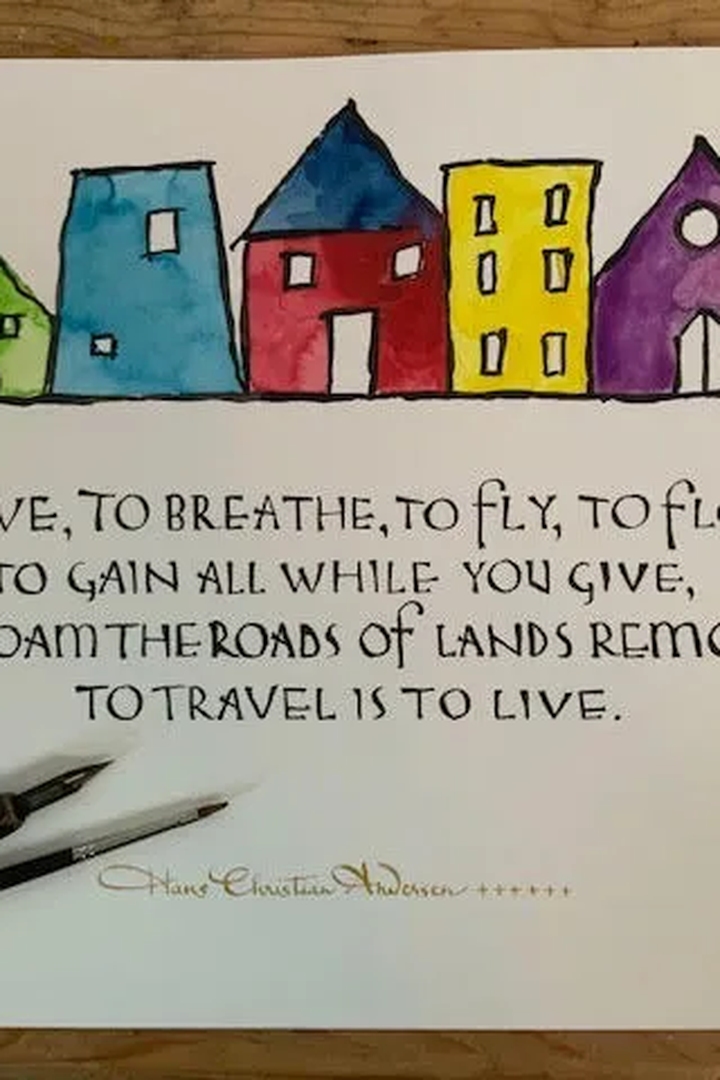 VE, TO BREATHE, TO FLY, TO FLO
TO GAIN ALL WHILE YOU GIVE,
OAM THE ROADS OF LANDS REMO
TO TRAVEL IS TO LIVE.
Hans Christian Andersen ++++++